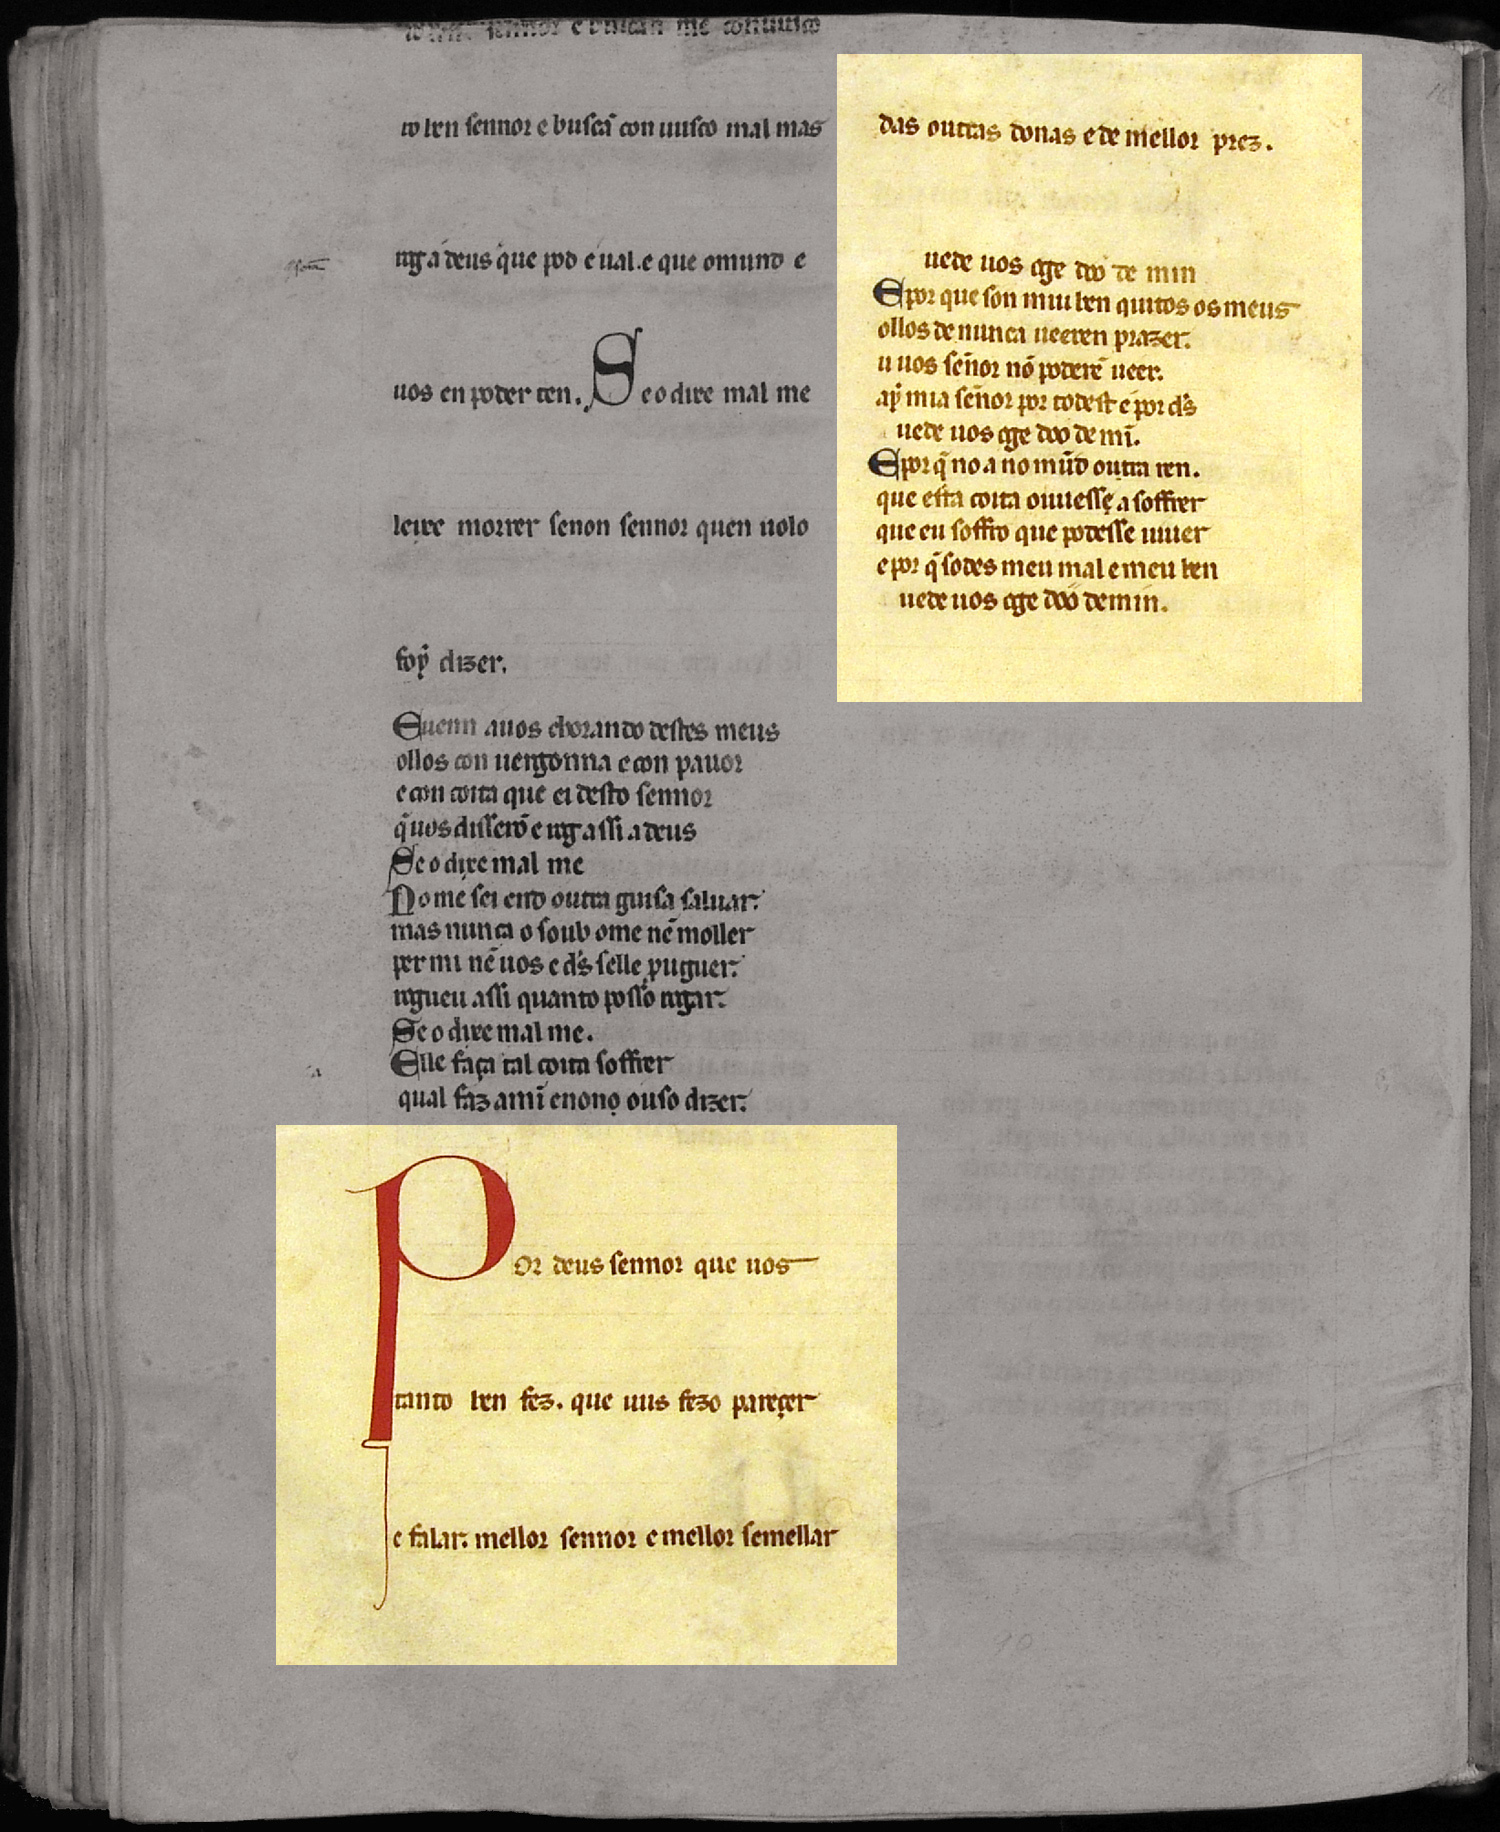 to ben sennor e buscã con uusco mal mas
rog a deus que pod e ual.e que o mund e
uos en poder ten. Se o dixe mal me
leixe morrer senon sennor quen uolo
foy dizer.
Euenn auos chorando destes meus
ollos con uergonna e con pauor
e con coita que ei desto sennor
q̃ uos disserõ e rog assi a deus
Se o dixe mal me
No me sei end outra guisa saluar.
mas nunca o soub ome nẽ moller
per mi nẽ uos e d̃s selle puguer.
rogueu assi quanto posso rogar.
Se o dixe mal me.
Elle faça tal coita soffrer
qual faz a mĩ e nono ouso dizer.
Por deus sennor que uos
tanto ben fez. que uus fezo pareçer
e falar. mellor sennor e mellor semellar
das outras donas e de mellor prez.
uede uos cge doo de min
E por que son muu ben quitos os meus
ollos de nunca ueeren prazer.
u uos sẽnor nõ poderẽ ueer.
aỹ mia sẽnor por todest e por d̃s
uede uos cge doo de mĩ.
E por q̃ no a no mũd outra ren.
que esta coita ouuesse a soffrer
que eu soffro que podesse uiuer
e por q̃ sodes meu mal e meu ben
uede uos cge doo de min.